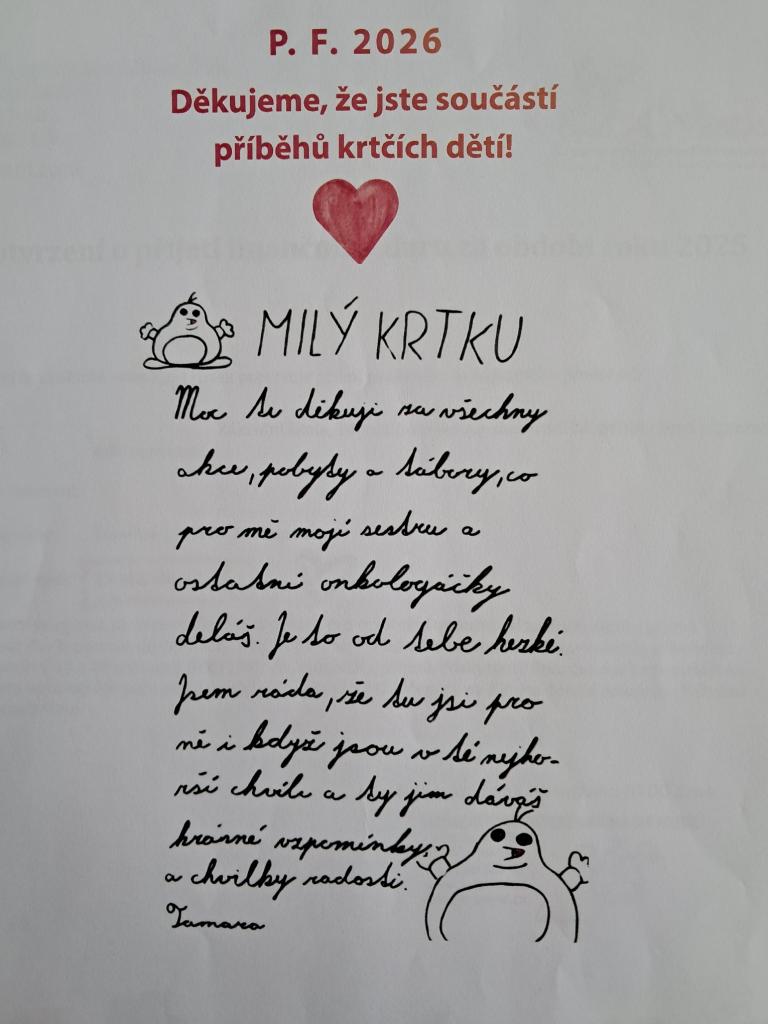 P. F. 2026
Děkujeme, že jste součástí
příběhů krtčích dětí!
MILÝ KRTKU
Moc ti děkuji za všechny
akce, pobyty a tábory, co
pro mě mojí sestru a
ostatní onkologáčky
deláš. Je to od tebe hezké.
Jsem ráda, že tu jsi pro
ně i když jsou v té nejho-
rší chvíli a ty jim dáváš
krásné vzpomínky
a chvilky radosti.
Tamara
otvrzení o přijetí finančního daru za období roku 2025